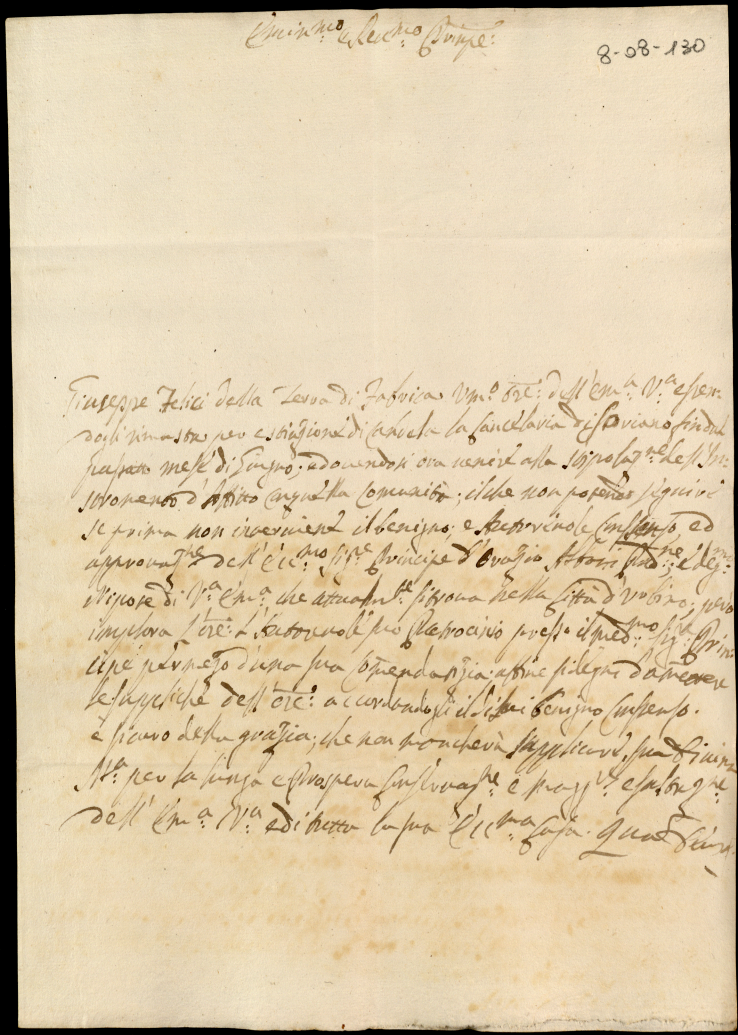 Emin.mo e Rev.mo Prinpe:
8-08-130
Giuseppe Felici della Terra di Fabrica Um.o Ore: dell'Em.a V.a essen-
dogli rimasta per estinzione di Candela la Cancelaria di Soriano sin dal
passato mese di Giugno; e dovendosi ora venire alla stipolaz.ne dell'In-
stromento d'Affitto con quella Comunità; il che non potendo seguire
se prima non interviene il benigno, e favorevole Consenso ed
approvaz.ne dell'Ecc.mo Sig.re Principe D. Orazio Albani Pad.ne, e deg.mo
Nipote di V.a Em.a, che attualm.te si trova nella Città d'Urbino; però
implora l'Ore: il favorevole suo Patrocinio presso il med.mo Sig.re Prin-
cipe per mezzo d'una sua Comendatizia; affine si degni d'amettere
le suppliche dell'Ore: accordandogli il di lui benigno Consenso.
e sicuro della grazia, che non mancherà supplicare Sua Divina
M.a per la lunga e Prospera Conservaz.ne e magg.re esaltaz.ne
dell'Em.a V.a e di tutta la sua Ecc.ma Casa. Quam Deus.